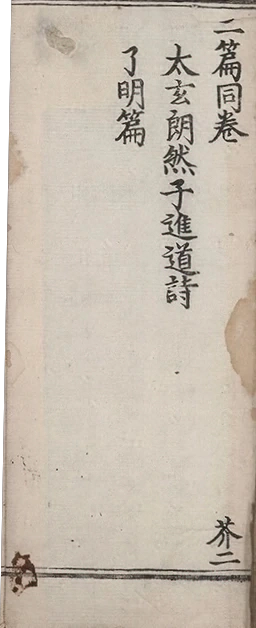 二篇同卷
芥二
太玄朗然子進道詩
了明篇